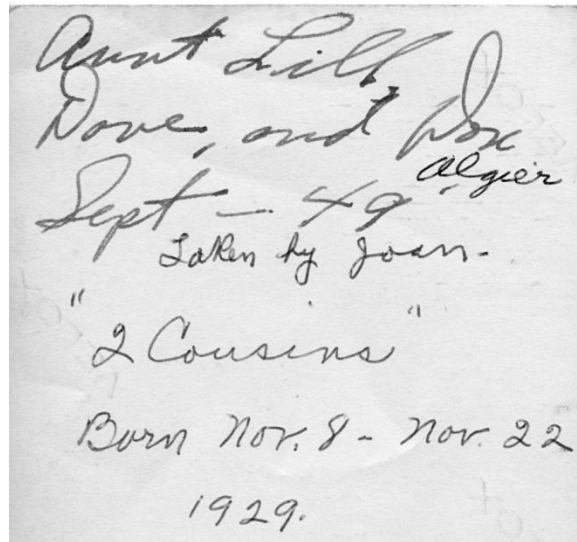 Aunt Lill,
Dave, and Don
Algier
Sept — 49
Taken by Joan-
"2 Cousins"
Born Nov. 8 - Nov. 22
1929.